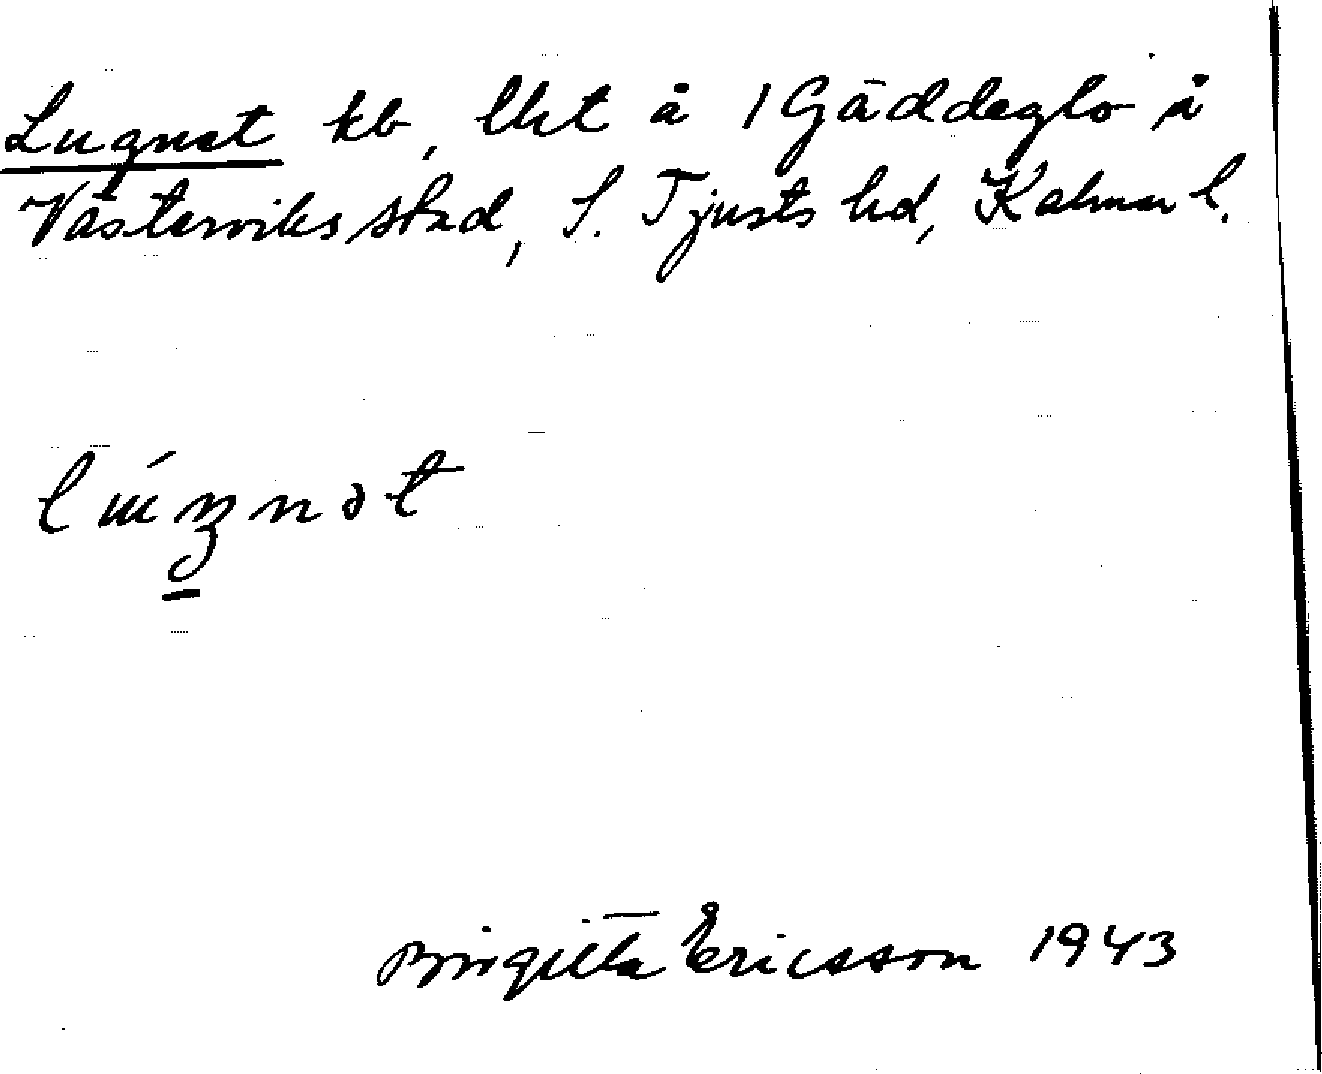 Lugnet kb, lht å 1 Gäddeglo i
Västerviks stad, S. Tjusts hd, Kalmar l.
Birgitta Ericsson 1943